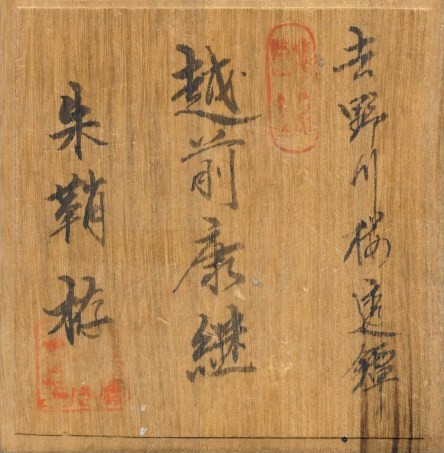 吉野川桜透鐔
越前康継
朱鞘拵